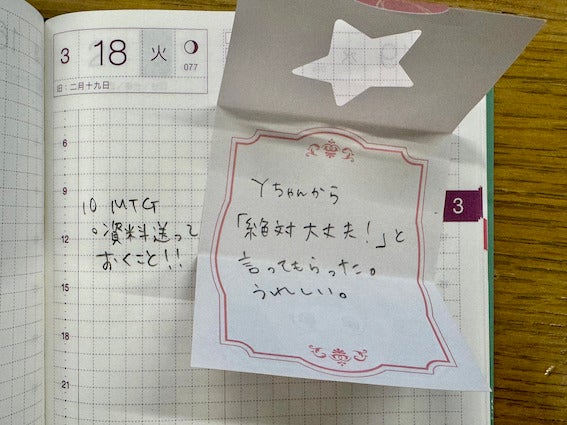 3 18 火
077
旧:二月十九日
6
9
10 MTG
○資料送って
おくこと!!
12
15
18
21
Yちゃんから
「絶対大丈夫!」と
言ってもらった。
うれしい。
3